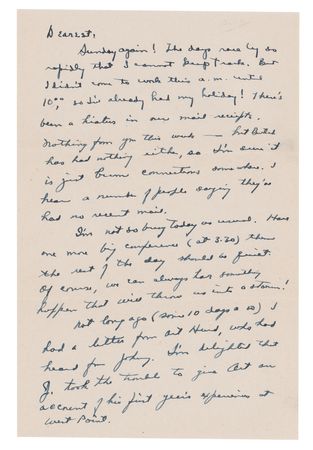 Dearest,
Sunday again! The days race by so
rapidly that I cannot keep track. But
I didn't come to work this a.m. until
10:00 so I've already had my holiday! There's
been a hiatus in our mail receipts.
Nothing from you this week — but Butch
has had nothing either, so I'm sure it
is just bum connections somewhere. I
hear a number of people saying they've
had no recent mail.
I'm not so busy today as usual. Have
one more big conference (at 3:30) then
the rest of the day should be quiet.
Of course, we can always have something
happen that will throw us into a storm!
Not long ago (some 10 days or so) I
had a letter from Art Hurd, who had
heard from Johnny. I'm delighted that
J. took the trouble to give Art an
account of his first year's experiences at
West Point.